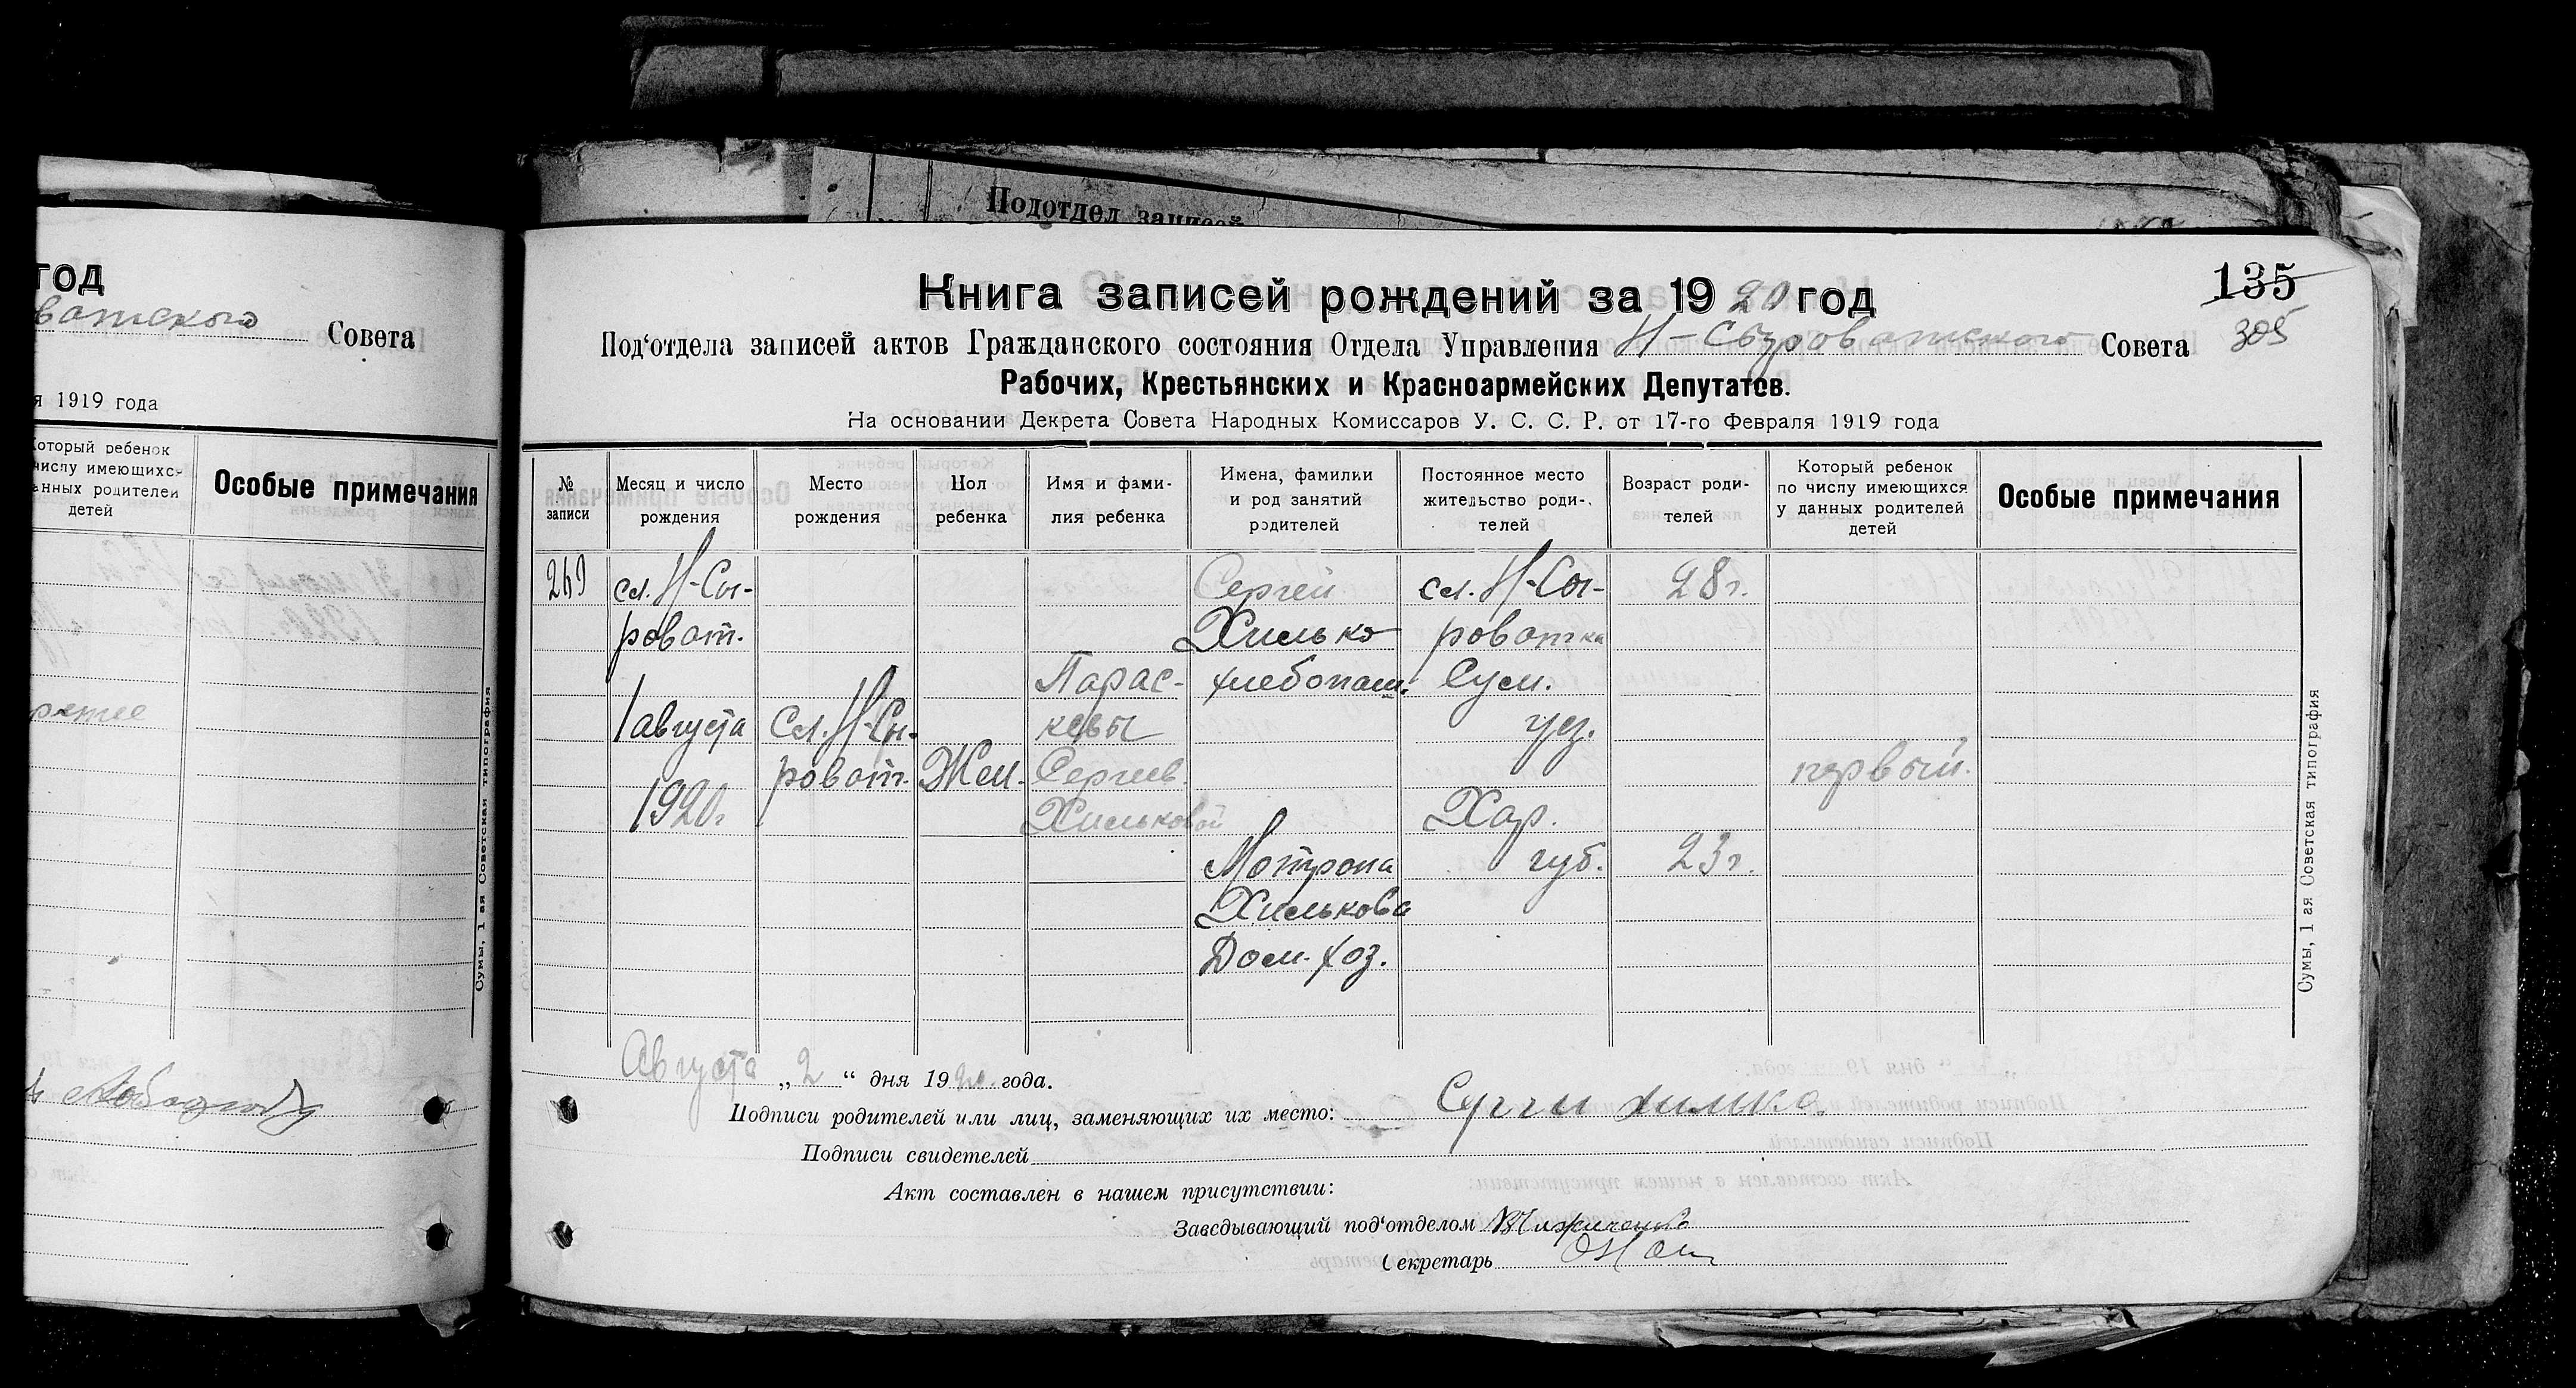 Подотдел записей
год
ватского Совета
я 1919 года
который ребенок
числу имеющихс-
анных родителей
детей
Особые примечания
Сумы, 1 ая Советская типография
135
305
Книга записей рождений за 1920 год
Под‘отдела записей актов Гражданского состояния Отдела Управления Н-Сыроватского Совета
Рабочих, Крестьянских и Красноармейских Депутатов.
На основании Декрета Совета Народных Комиссаров У. С. С. Р. от 17-го Февраля 1919 года
№ записи
Месяц и число рождения
Место рождения
Пол ребенка
Имя и фами-
лия ребенка
Имена, фамилии
и род занятий
родителей
Постоянное место
жительство роди-
телей
Возраст роди-
телей
Который ребенок
по числу имеющихся
у данных родителей
детей
Особые примечания
269
сл. Н-Сы-
роват.
1 августа
1920г.
Сл. Н-Сы-
роват.
Жен.
Парас-
кевы
Сергеев.
Хильковой
Сергей
Хилько
хлебопаш.
Мотрона
Хилькова
Дом. хоз.
сл. Н-Сы-
роватка
Сум.
уез.
Хар.
губ.
28г.
23г.
первый.
Сумы, 1 ая Советская типография
Августа „2“ дня 1920 года.
Подписи родителей или лиц, заменяющих их место: Сергеи хилко
Подписи свидетелей
Акт составлен в нашем присутствии:
Заведывающий под‘отделом
Секретарь